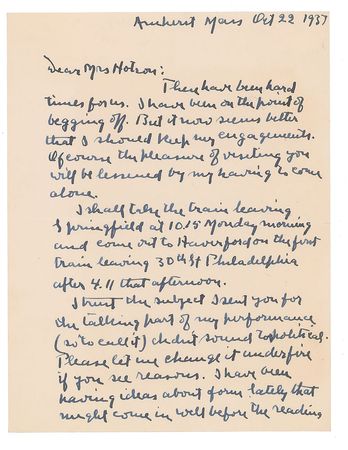 Amherst Mass Oct 22 1937
Dear Mrs Hotson:
These have been hard
times for us. I have been on the point of
begging off. But it now seems better
that I should keep my engagements.
Of course the pleasure of visiting you
will be lessened by my having to come
alone.
I shall take the train leaving
Springfield at 10.15 Monday morning
and come out to Haverford on the first
train leaving 30th St Philadelphia
after 4.11 that afternoon.
I trust the subject I sent you for
the talking part of my performance
(so to call it) didnt sound too political.
Please let me change it under fire
if you see reasons. I have been
having ideas about form lately that
might come in well before the reading